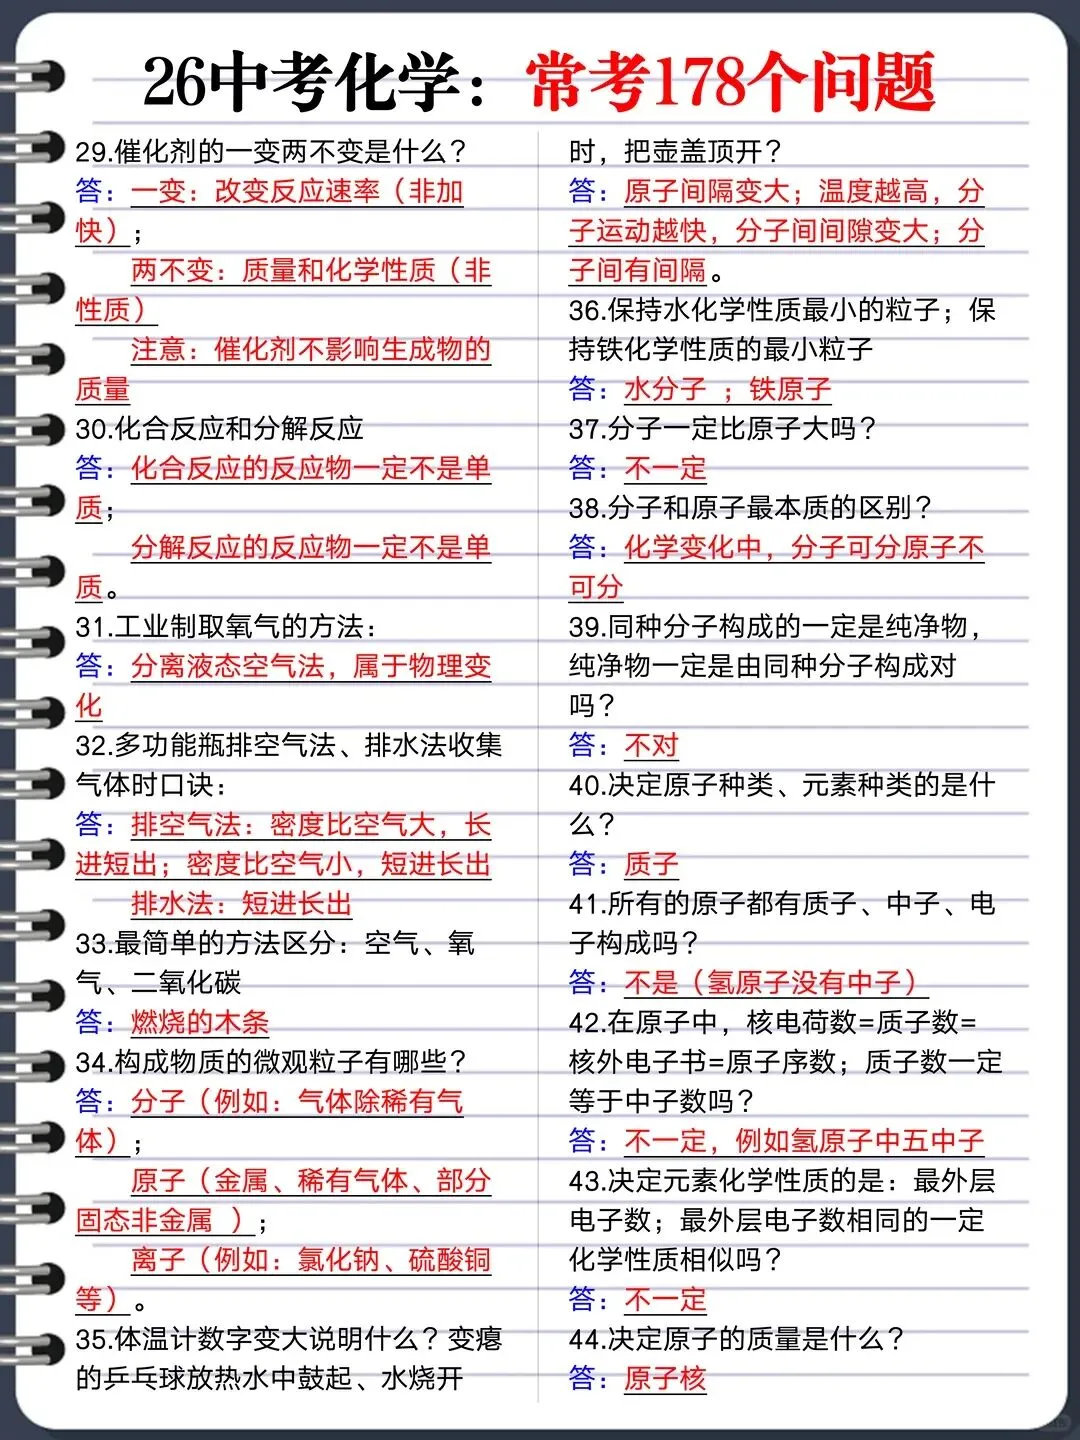 26中考化学：常考178个问题
29.催化剂的一变两不变是什么？
答：一变：改变反应速率（非加
快）；
两不变：质量和化学性质（非
性质）
注意：催化剂不影响生成物的
质量
30.化合反应和分解反应
答：化合反应的反应物一定不是单
质；
分解反应的反应物一定不是单
质。
31.工业制取氧气的方法：
答：分离液态空气法，属于物理变
化
32.多功能瓶排空气法、排水法收集
气体时口诀：
答：排空气法：密度比空气大，长
进短出；密度比空气小，短进长出
排水法：短进长出
33.最简单的方法区分：空气、氧
气、二氧化碳
答：燃烧的木条
34.构成物质的微观粒子有哪些？
答：分子（例如：气体除稀有气
体）；
原子（金属、稀有气体、部分
固态非金属 ）；
离子（例如：氯化钠、硫酸铜
等）。
35.体温计数字变大说明什么？变瘪
的乒乓球放热水中鼓起、水烧开
时，把壶盖顶开？
答：原子间隔变大；温度越高，分
子运动越快，分子间间隙变大；分
子间有间隔。
36.保持水化学性质最小的粒子；保
持铁化学性质的最小粒子
答：水分子 ；铁原子
37.分子一定比原子大吗？
答：不一定
38.分子和原子最本质的区别？
答：化学变化中，分子可分原子不
可分
39.同种分子构成的一定是纯净物，
纯净物一定是由同种分子构成对
吗？
答：不对
40.决定原子种类、元素种类的是什
么？
答：质子
41.所有的原子都有质子、中子、电
子构成吗？
答：不是（氢原子没有中子）
42.在原子中，核电荷数=质子数=
核外电子书=原子序数；质子数一定
等于中子数吗？
答：不一定，例如氢原子中五中子
43.决定元素化学性质的是：最外层
电子数；最外层电子数相同的一定
化学性质相似吗？
答：不一定
44.决定原子的质量是什么？
答：原子核